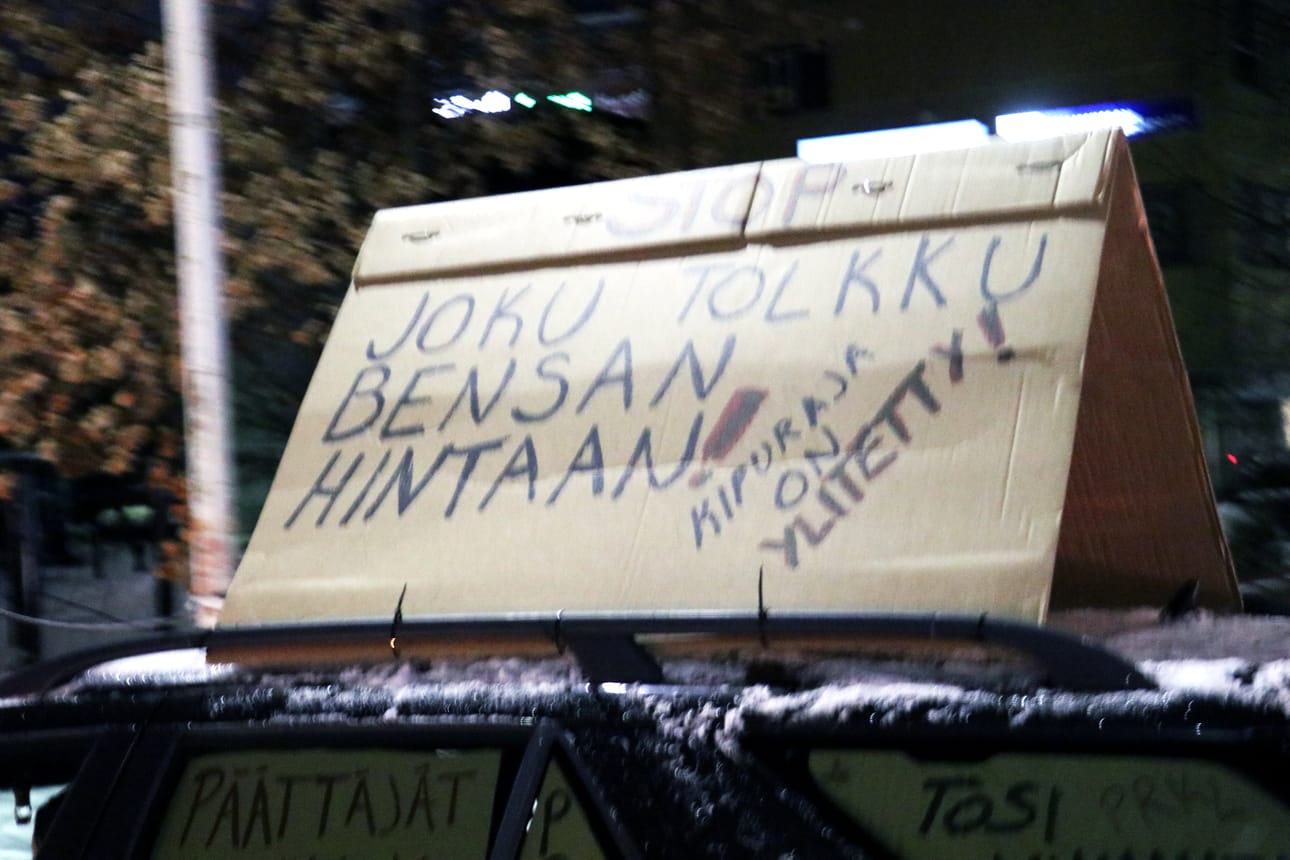 STOP
JOKU TOLKKU
BENSAN
HINTAAN!
KIPURAJA
ON
YLITETTY!
PÄÄTTÄJÄT
P
TOSI PRKL